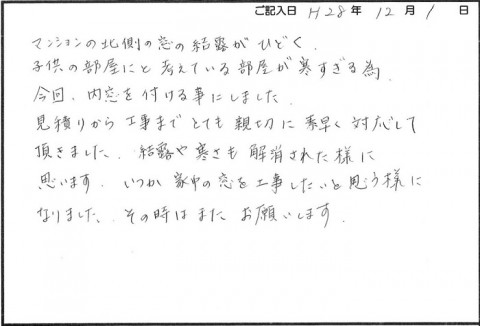 ご記入日 H28年 12月 1日
マンションの北側の窓の結露がひどく、
子供の部屋にと考えている部屋が寒すぎる為、
今回、内窓を付ける事にしました。
見積りから工事までとても親切に素早く対応して
頂きました。結露や寒さも解消された様に
思います。いつか家中の窓を工事したいと思う様に
なりました。その時はまたお願いします。